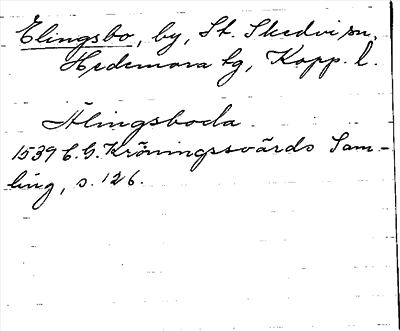 Elingsbo, by, St. Skedvi sn,
Hedemora tg, Kopp. l.
Älingsboda
1539 C. G. Kröningssvärds Sam-
ling, s. 126.